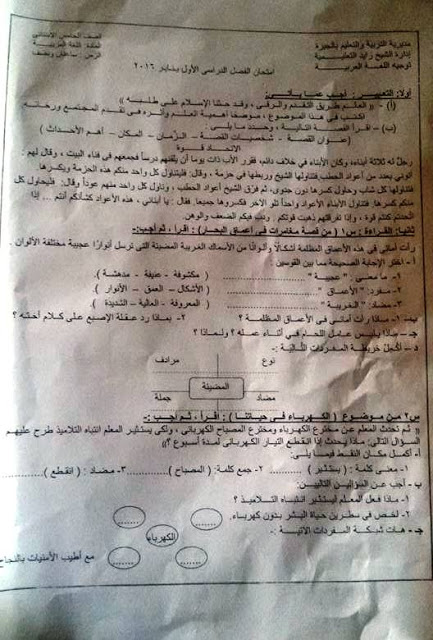 مديرية التربية والتعليم بالجيزة
إدارة الشيخ زايد التعليمية
توجيه اللغة العربية
الصف الخامس الابتدائى
المادة: اللغة العربية
الزمن: ساعتان ونصف
امتحان الفصل الدراسى الأول يناير ٢٠١٦
أولا: التعبير: أجب عما يأتى:
(أ) - (( العلم طريق التقدم والرقى ، وقد حثنا الإسلام على طلبه ))
اكتب فى هذا الموضوع ، موضحا أهمية العلم وأثره فى تقدم المجتمع ورخائه.
(ب) - اقرأ القصة التالية ، وحدد ما يلى :
(عنوان القصة - شخصيات القصة - الزمان - المكان - أهم الأحداث )
الاتحاد قوة
رجل له ثلاثة أبناء، وكان الأبناء فى خلاف دائم، فقرر الأب ذات يوم أن يلقنهم درسا فجمعهم فى فناء البيت ، وقال لهم :
آتونى بعدد من أعواد الحطب فتناولها الشيخ وربطها فى حزمة ، وقال: فليحاول كل واحد منكم هذه الحزمة ويكسرها
فتناولها كل شاب وحاول كسرها دون جدوى، ثم فرّق الشيخ أعواد الحطب ، وناول كل واحد منهم عودا وقال: فليحاول كل
واحد منكم كسرها. فتناول الأبناء الأعواد واحدا تلو الآخر فكسروها جميعا. فقال : يا أبنائى ، هذه الأعواد كشأنكم أنتم ... إذا
اتحدتم كنتم قوة ، وإذا تفرقتم ذهبت قوتكم . ودب فيكم الضعف والوهن.
ثانيا: القراءة : س١ ( من قصة مغامرات فى أعماق البحار ): اقرأ ، ثم أجب:-
رأت أمانى فى هذه الأعماق المظلمة أشكالًا وألوانًا من الأسماك الغريبة المضيئة التى ترسل أنوارًا عجيبة مختلفة الألوان .
أ - اختر الإجابة الصحيحة مما بين القوسين
١- ما معنى: " عجيبة " .................... ( مكشوفة - عنيفة - مدهشة )
٢- مفرد " الأعماق" .................... (الأشكال - العمق - الأنوار )
٣- مضاد: " الغريبة " .................... ( المعروفة - العالية - الشديدة )
ب- ١- ماذا رأت أمانى فى الأعماق المظلمة ؟ ٢- بماذا رد عقلة الإصبع على كلام أخته ؟
جـ - ماذا يلبس عامل اللحام فى أثناء عمله ؟ ولماذا ؟
د - أكمل خريطة المفردات التالية :-
نوع
مرادف
المضيئة
مضاد
جملة
س٢ من موضوع ( الكهرباء فى حياتنا ) : اقرأ ، ثم أجب :-
(( ثم تحدث المعلم عن مخترع الكهرباء ومخترع المصباح الكهربائى ، ولكى يستثير المعلم انتباه التلاميذ طرح عليهم
السؤال التالى: ماذا يحدث إذا انقطع التيار الكهربائى لمدة أسبوع ؟))
أ - أكمل مكان النقط فيما يلى:
١- معنى كلمة : ( يستثير ) .......... ٢- جمع كلمة: ( المصباح ) .......... ٣- مضاد : ( انقطع ) ..........
ب - أجب عن السؤالين التاليين:
١- ماذا فعل المعلم ليستثير انتباه التلاميذ ؟
٢- لخص فى سطرين حياة البشر بدون كهرباء.
جـ - هات شبكة المفردات الآتية :-
......
......
الكهرباء
......
......
مع أطيب الأمنيات بالنجاح